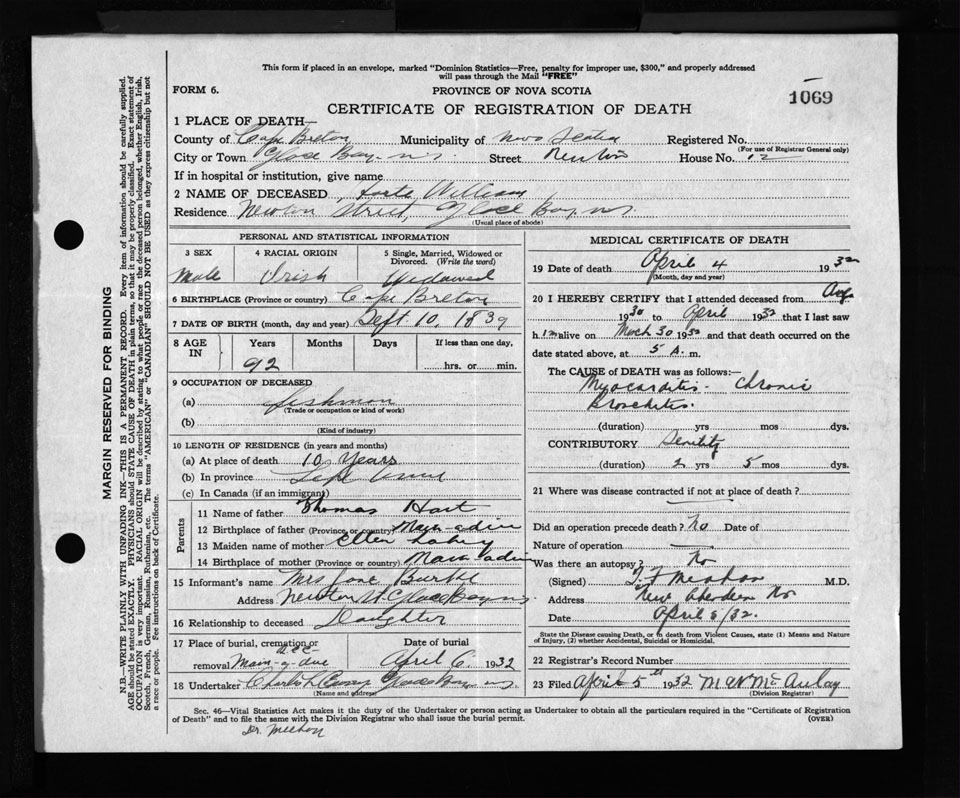 This form if placed in an envelope, marked "Dominion Statistics—Free, penalty for improper use, $300," and properly addressed
will pass through the Mail "FREE"
FORM 6.
PROVINCE OF NOVA SCOTIA
1069
CERTIFICATE OF REGISTRATION OF DEATH
1 PLACE OF DEATH—
County of Cape Breton Municipality of Nova Scotia Registered No.
(For use of Registrar General only)
City or Town Glace Bay N.S. Street Newton House No. 12
If in hospital or institution, give name
2 NAME OF DECEASED William
Residence Newton Street, Glace Bay N.S.
(Usual place of abode)
PERSONAL AND STATISTICAL INFORMATION
3 SEX 4 RACIAL ORIGIN 5 Single, Married, Widowed or
Divorced. (Write the word)
Male Irish Widowed
6 BIRTHPLACE (Province or country) Cape Breton
7 DATE OF BIRTH (month, day and year) Sept. 10, 1839
8 AGE
IN
Years Months Days If less than one day,
92 hrs. or min.
9 OCCUPATION OF DECEASED
(a) Fishman
(Trade or occupation or kind of work)
(b)
(Kind of industry)
10 LENGTH OF RESIDENCE (in years and months)
(a) At place of death 10 Years
(b) In province Life
(c) In Canada (if an immigrant)
Parents
11 Name of father Thomas Hart
12 Birthplace of father (Province or country)
13 Maiden name of mother Ellen
14 Birthplace of mother (Province or country)
15 Informant's name Mrs Jane Burke
Address Newton St Glace Bay N.S.
16 Relationship to deceased Daughter
17 Place of burial, cremation or Date of burial
removal Main-a-due April 6 1932
18 Undertaker Charles Glace Bay N.S.
(Name and address)
MEDICAL CERTIFICATE OF DEATH
19 Date of death April 4 1932
(Month, day and year)
20 I HEREBY CERTIFY that I attended deceased from Aug
1930 to April 1932 that I last saw
h im alive on March 30 1932 and that death occurred on the
date stated above, at 5 A. m.
The CAUSE of DEATH was as follows:—
Myocarditis - Chronic
Bronchitis.
(duration) yrs mos dys.
CONTRIBUTORY Senility
(duration) 2 yrs 5 mos dys.
21 Where was disease contracted if not at place of death?
Did an operation precede death? No Date of
Nature of operation
Was there an autopsy? No
(Signed) M.D.
Address New Aberdeen
Date April 5/32.
State the Disease causing Death, or to death from Violent Causes, state (1) Means and Nature
of Injury, (2) whether Accidental, Suicidal or Homicidal.
22 Registrar's Record Number
23 Filed April 5th 1932 McAulay
(Division Registrar)
Sec. 46—Vital Statistics Act makes it the duty of the Undertaker or person acting as Undertaker to obtain all the particulars required in the "Certificate of Registration
of Death" and to file the same with the Division Registrar who shall issue the burial permit.
(OVER)
Dr. Meehan
MARGIN RESERVED FOR BINDING
N.B.—WRITE PLAINLY WITH UNFADING INK—THIS IS A PERMANENT RECORD. Every item of information should be carefully supplied.
AGE should be stated EXACTLY. PHYSICIANS should STATE CAUSE OF DEATH in plain terms, so that it may be properly classified. Exact statement of
OCCUPATION is very important. RACIAL ORIGIN will be described by stating to what people or race the deceased person belonged, whether English, Irish,
Scotch, French, German, Russian, Ruthenian, etc. The terms "AMERICAN" or "CANADIAN" SHOULD NOT BE USED as they express citizenship but not
a race or people. See instructions on back of Certificate.